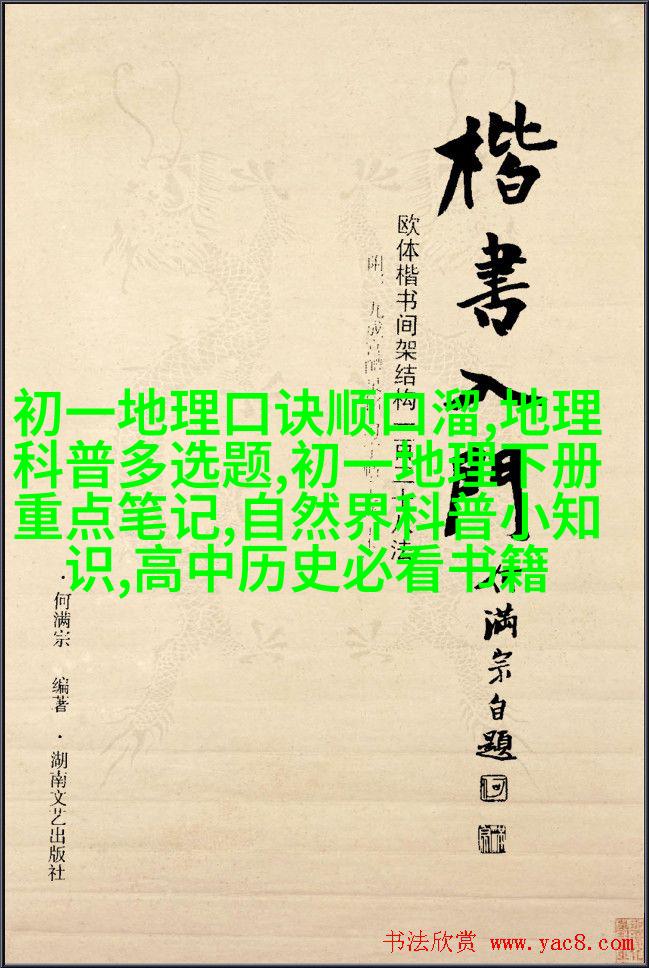 楷書入門
何满宗自題
欧体楷书间架结构一百二十八法
初一地理口诀顺口溜,地理
科普多选题,初一地理下册
重点笔记,自然界科普小知
识,高中历史必看书籍
·何满宗 编著·湖南文艺出版社
书法欣赏 www.yac8.com